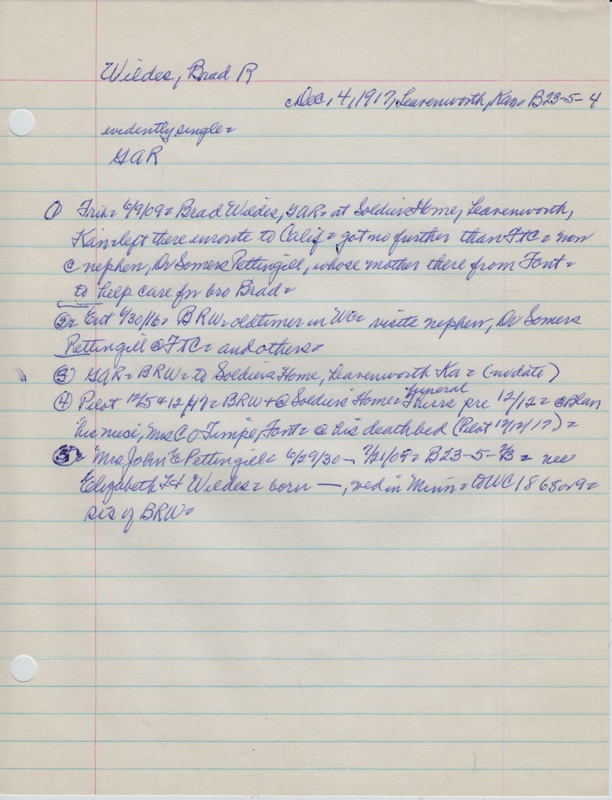 Wildes, Brad R
Dec, 4, 1917, Leavenworth, Kan= B23-5-4
evidently single=
GAR
① Trib= 6/9/09= Brad Wildes, GAR= at Soldiers Home, Leavenworth,
Kan=left there enroute to Calif= got no further than FTC= now
c nephew, Dr Somers Pettingill, whose mother there from Font=
to help care for bro Brad=
②= Ent 6/30/16= BRW=oldtimer in WC= visits nephew, Dr Somers
Pettingill @ FTC= and others=
③ GAR= BRW= to Soldiers Home, Leavenworth Ka= (no date)
④ Pilot 12/5 & 12/17= BRW+@ Soldiers' Home= funeral Thurs pre 12/12= @
his niece, Mrs C O Timpe, Font= @ his deathbed (Pilot 12/12/17)=
⑤= Mrs John E Pettingill= 6/29/30 - 7/21/09= B23-5-3= nee
Elizabeth Wildes= born —, wed in Minn= to WC 1868or9=
sis of BRW=